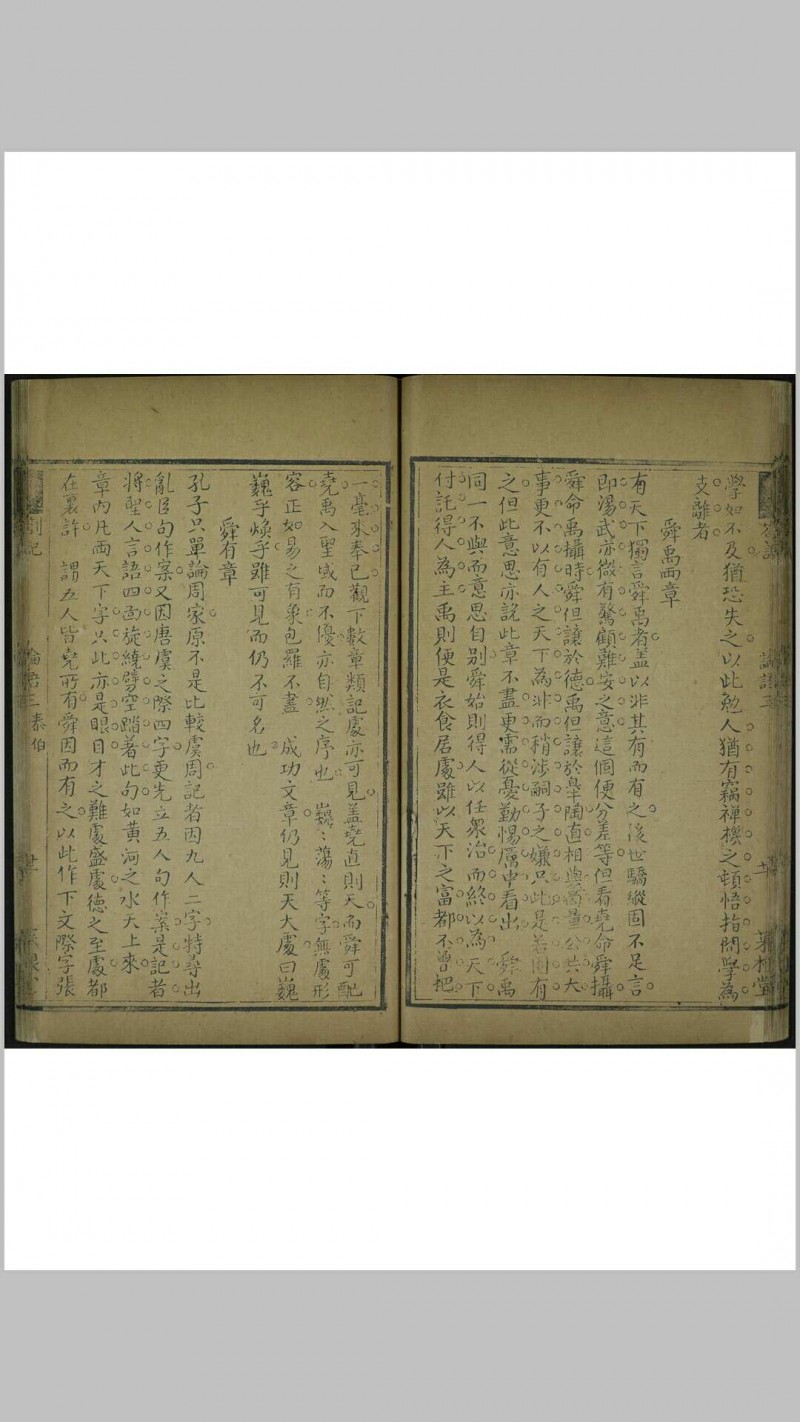 學如不及猶恐失之以此勉人猶有竊禪機之頓悟指問學為
支離者
舜禹兩章
有天下獨言舜禹者蓋以非其有而有之後世驕縱固不足言
即湯武亦微有驚顧難安之意這個便分差等但看堯命舜攝
舜命禹攝時舜但讓於德禹但讓於臯陶直相與商量公共大
事更不以有人之天下為非而稍涉嗣子之嫌只此是有
之但此意思亦說此章不盡更需從憂勤惕厲中看出 舜禹
同一不與而意思自別舜始則得人以任衆治而終以為天下
付託得人為主禹則便是衣食居處雖以天下之富都不曾把
一毫來奉己觀下數章類記處亦可見蓋堯直則天而舜可配
堯禹入聖域而不優亦自然之序也 巍〻蕩〻等字無處形
容正如易之有象包羅不盡 成功文章仍見則天大處曰巍
巍乎煥乎雖可見而仍不可名也
舜有章
孔子只單論周家原不是比較虞周記者因九人二字特尋出
亂臣句作案又因唐虞之際四字更先立五人句作案是記者
將聖人言語四面旋繞劈空蹈著此句如黃河之水天上來
章內凡兩天下字只此亦是眼目才之難處盛處德之至處都
在裏許 謂五人皆堯所有舜因而有之以此作下文際字張
劄記
論語三 泰伯